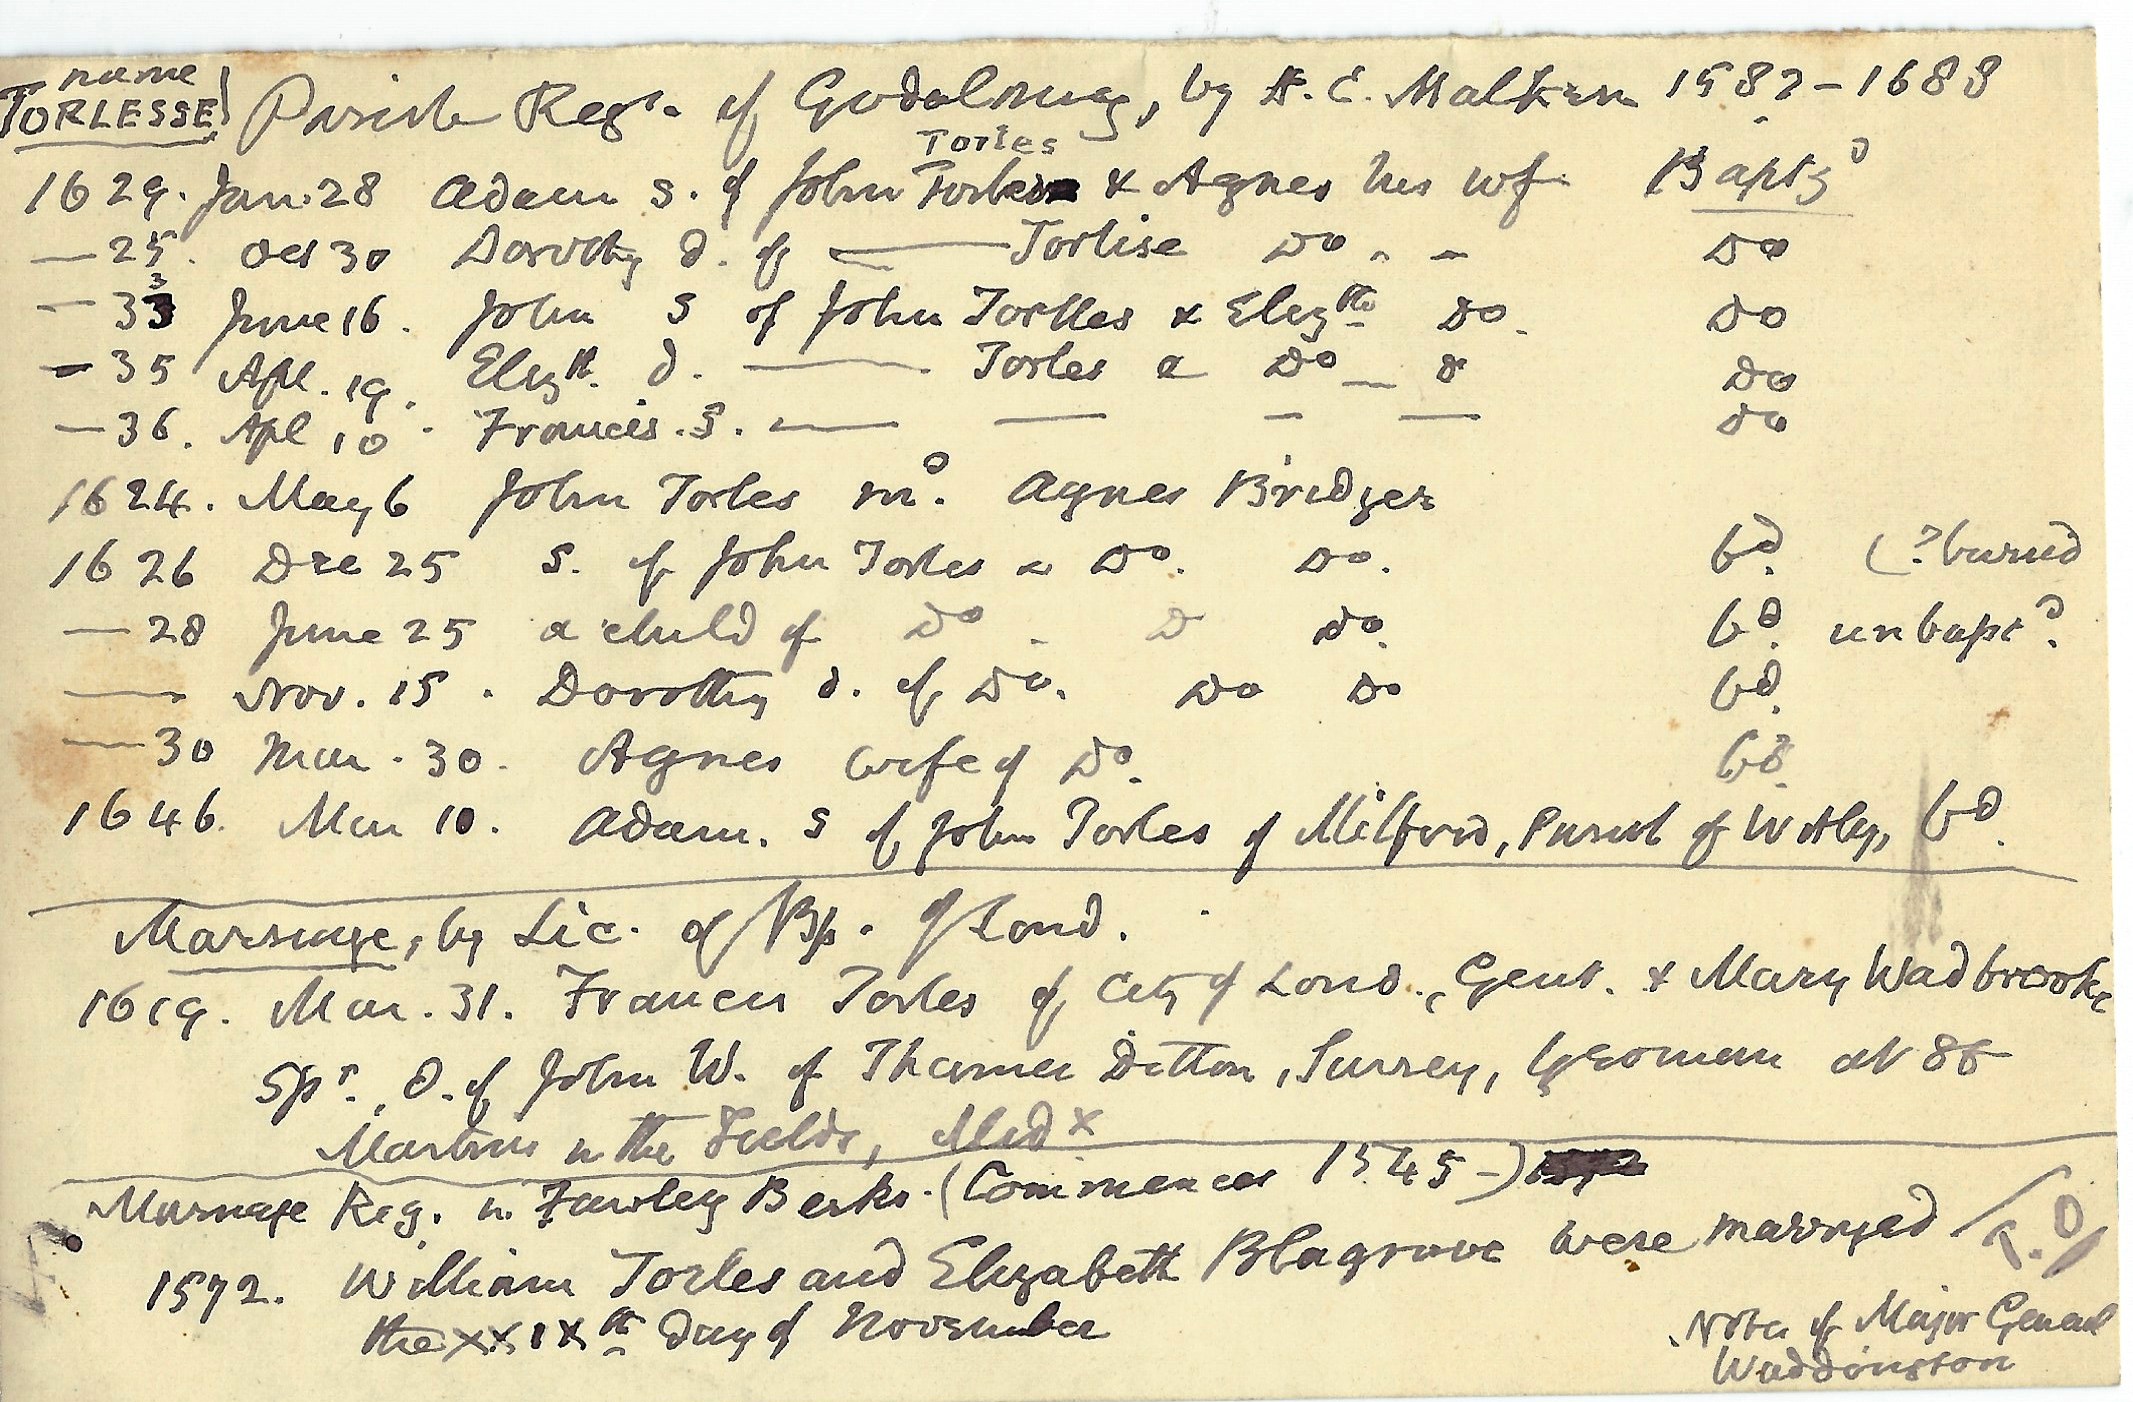 name
TORLESSE) Parish Regr. of Godalming, by H. E. Malden 1582-1688
Torles
1629. Jan. 28 Adam s. of John & Agnes his wf Baptzd
— 25. Oct 30 Dorothy d. of —— Tortise Do. - - Do
3
— 33 June 16. John s of John Torlles & Elizth Do. Do
— 35 Apl. 19. Elizth. d. —— Torles & Do — & Do
— 36. Apl 10. Francis. S. —— — — — Do
1624. May 6 John Torles mo. Agnes Bridger
1626 Dec 25 s. of John Torles & Do. Do. bd. (? buried
— 28 June 25 a child of Do - D Do. bd. unbaptd.
—— Nov. 15. Dorothy d. of Do. Do Do bd.
— 30 Mar. 30. Agnes wife of Do. bd.
1646. Mar 10. Adam. s of John Torles of Milford, Parish of Witley, bd.
Marriage, by Lic. of Bp. of Lond.
1619. Mar. 31. Francis Torles of City of Lond., Gent. & Mary Wadbrooke
Spr., D. of John W. of Thames Ditton, Surrey, Yeoman at St
Martins in the Fields, Midx
Marriage Reg. in Fawley Berks. (Commences 1545-)
1572. William Torles and Elizabeth Blagrave were marryed /T.O/
the xxixth day of November
Notes of Major General
Waddington